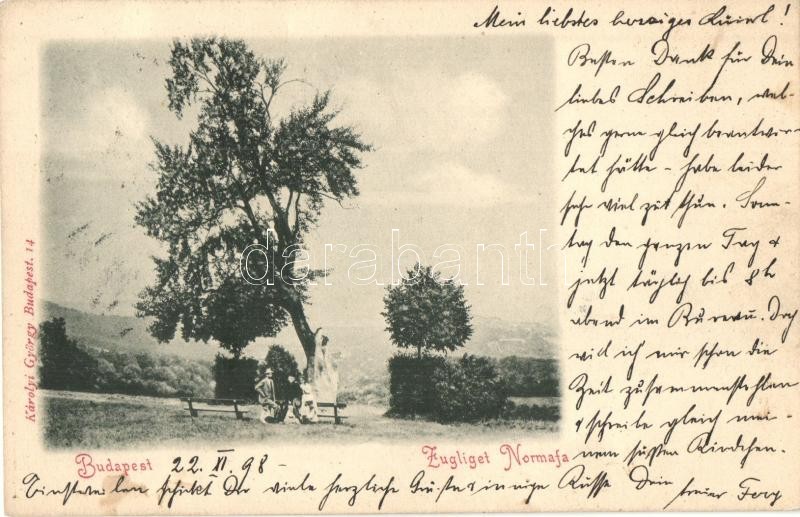 Mein liebstes herziges
Besten Dank für Dein
liebes Schreiben, wel-
ches gerne gleich beantwor-
tet hätte - habe leider
sehr viel zu thun. Sonn-
tag den ganzen Tag &
jetzt täglich bis 8h
abend im Bureau. Doch
will ich mir schon die
Zeit zusammenstehlen
& schreibe gleich mei-
nem süßen Kindchen.
Károlyi György Budapest. 14
darabanth
Budapest 22. XI. 98 -
Zugliget Normafa
Einstweilen schickt Dir viele herzliche Grüsse & innige Küsse Dein
treuer